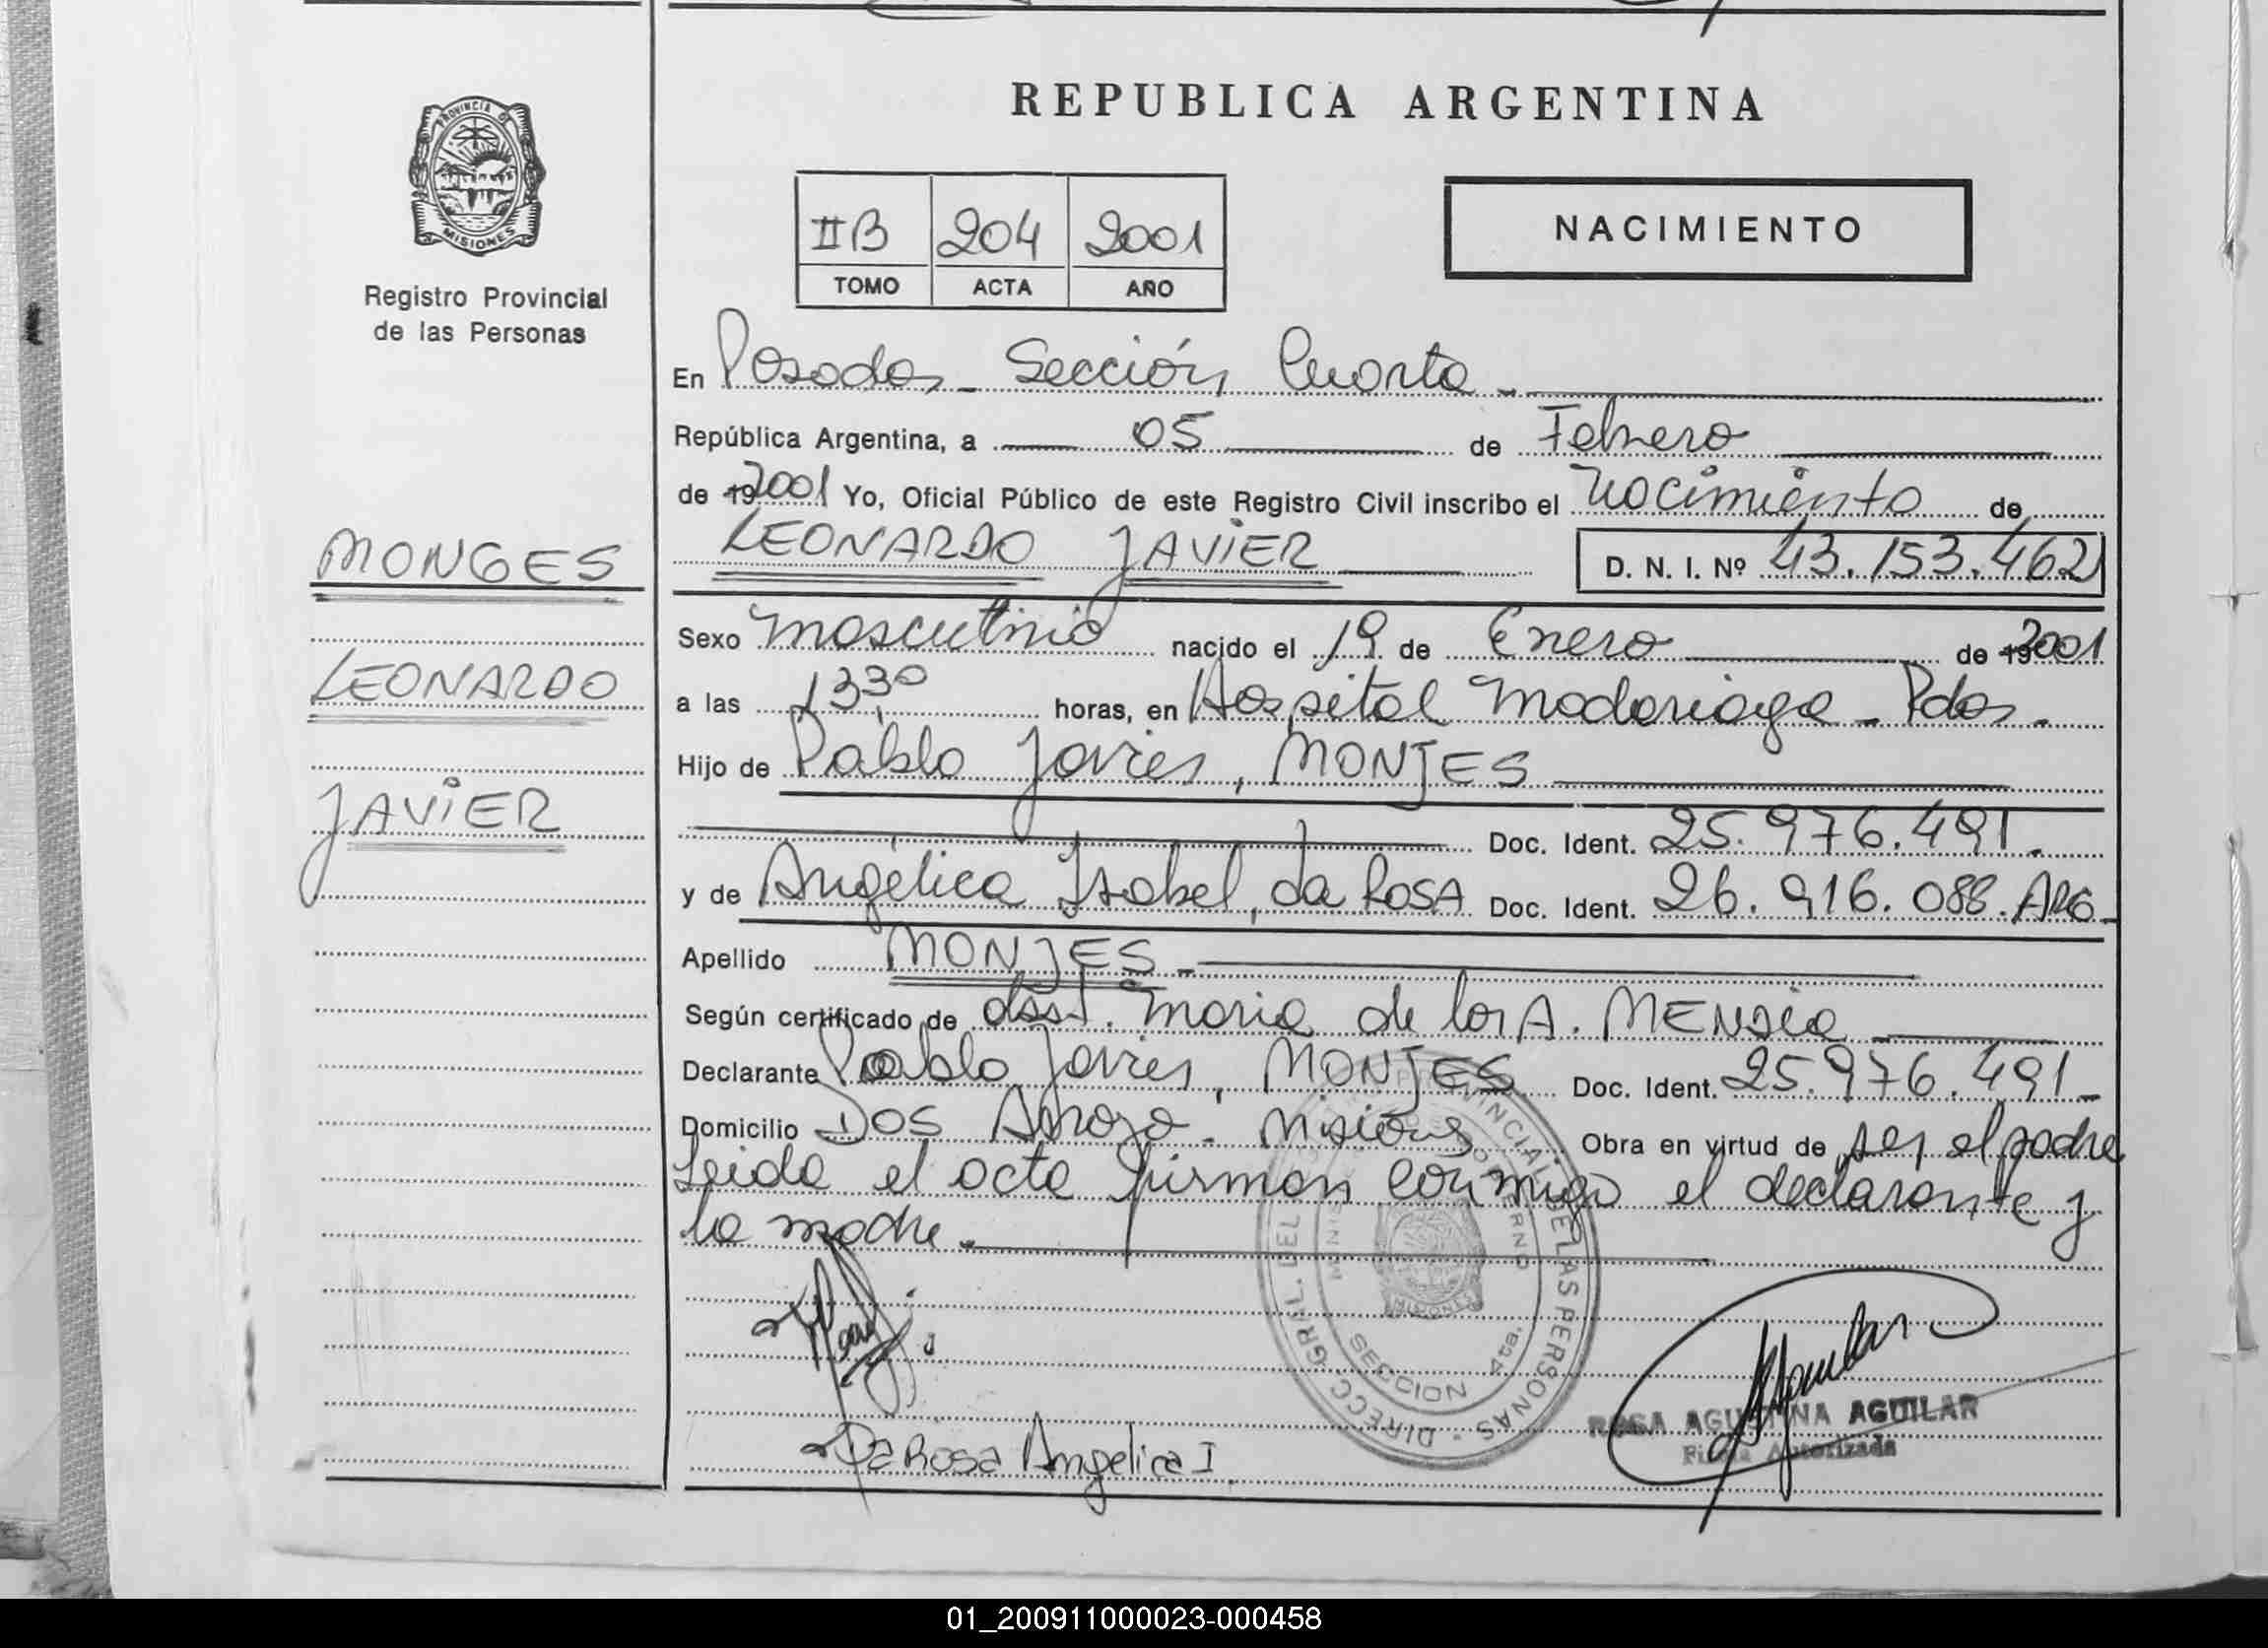 REPUBLICA ARGENTINA
PROVINCIA DE
MISIONES
Registro Provincial
de las Personas
IIB 204 2001
TOMO ACTA AÑO
NACIMIENTO
En Posadas - Sección Cuarta -
República Argentina, a 05 de Febrero
de 19 2001 Yo, Oficial Público de este Registro Civil inscribo el Nacimiento de
LEONARDO JAVIER D. N. I. Nº 43.153.462
MONGES
LEONARDO
JAVIER
Sexo masculino nacido el 19 de Enero de 19 2001
a las 13,30 horas, en Hospital Madariaga - Pdas.
Hijo de Pablo Javier, MONJES
Doc. Ident. 25.976.491.
y de Angélica Isabel, da ROSA Doc. Ident. 26.916.088. ARG-
Apellido MONJES -
Según certificado de María de los A. MENDIA
Declarante Pablo Javier, MONJES Doc. Ident. 25.976.491 -
Domicilio Dos Arroyo - Misiones Obra en virtud de ser el padre
Leida el acta firman conmigo el declarante y
la madre -
DIRECC. GRAL. DEL REG. PROVINCIAL DE LAS PERSONAS
SECCION 4ta.
MISIONES
ROSA AGUSTINA AGUILAR
Firma Autorizada
Da Rosa Angelica I
01_200911000023-000458